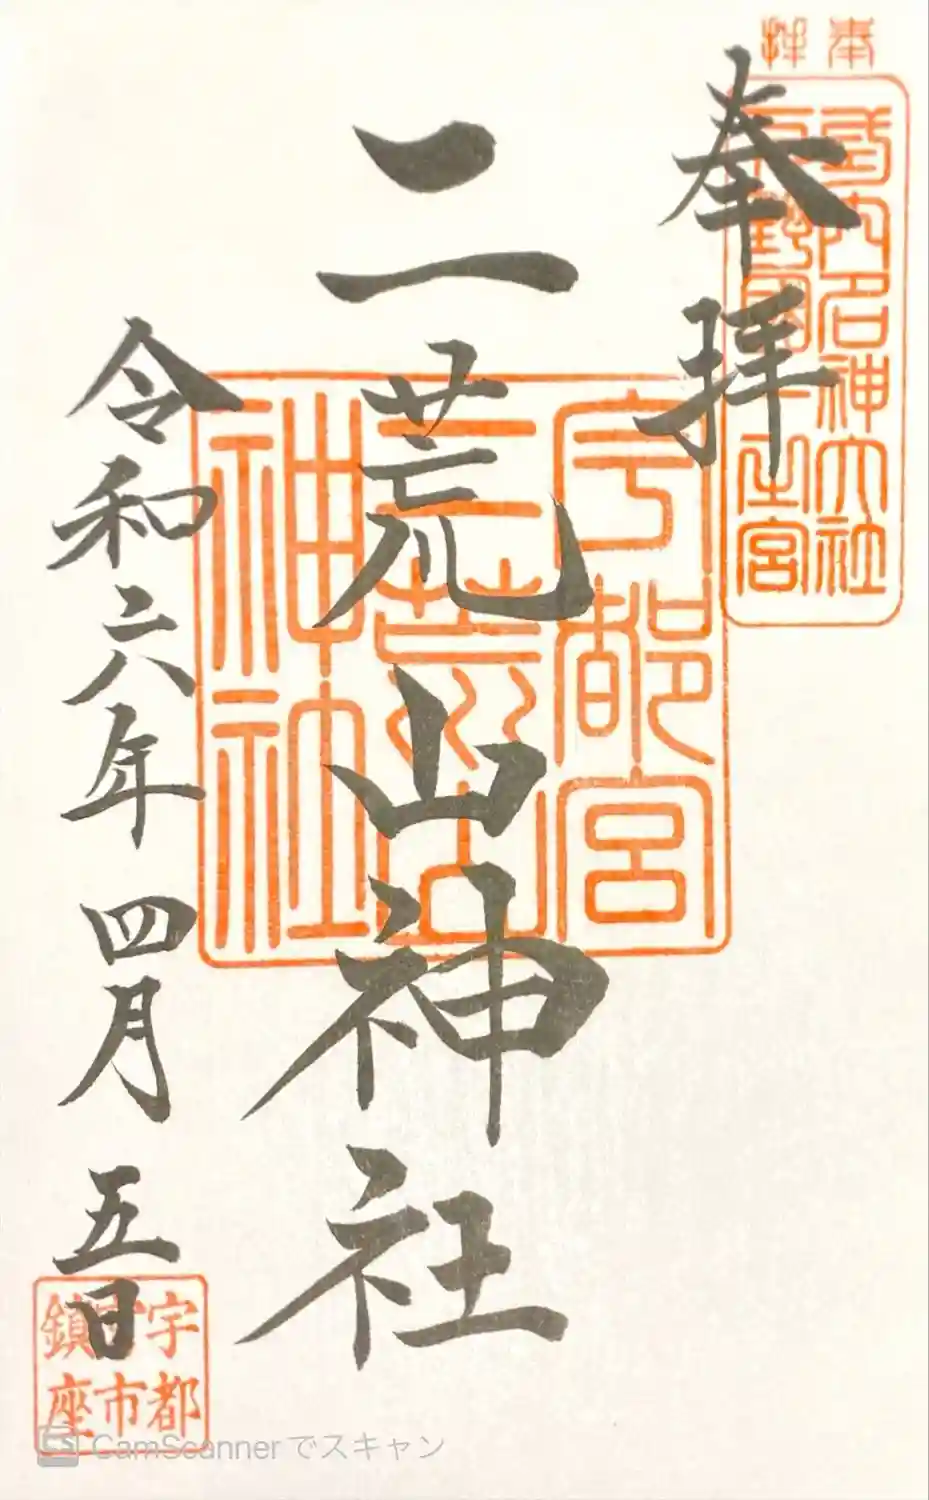 奉拝
内名神大社
下野國一之宮
奉拝
二荒山神社
宇都宮
二荒山
神社
令和六年四月五日
宇都
宮市
鎮座
CS CamScannerでスキャン